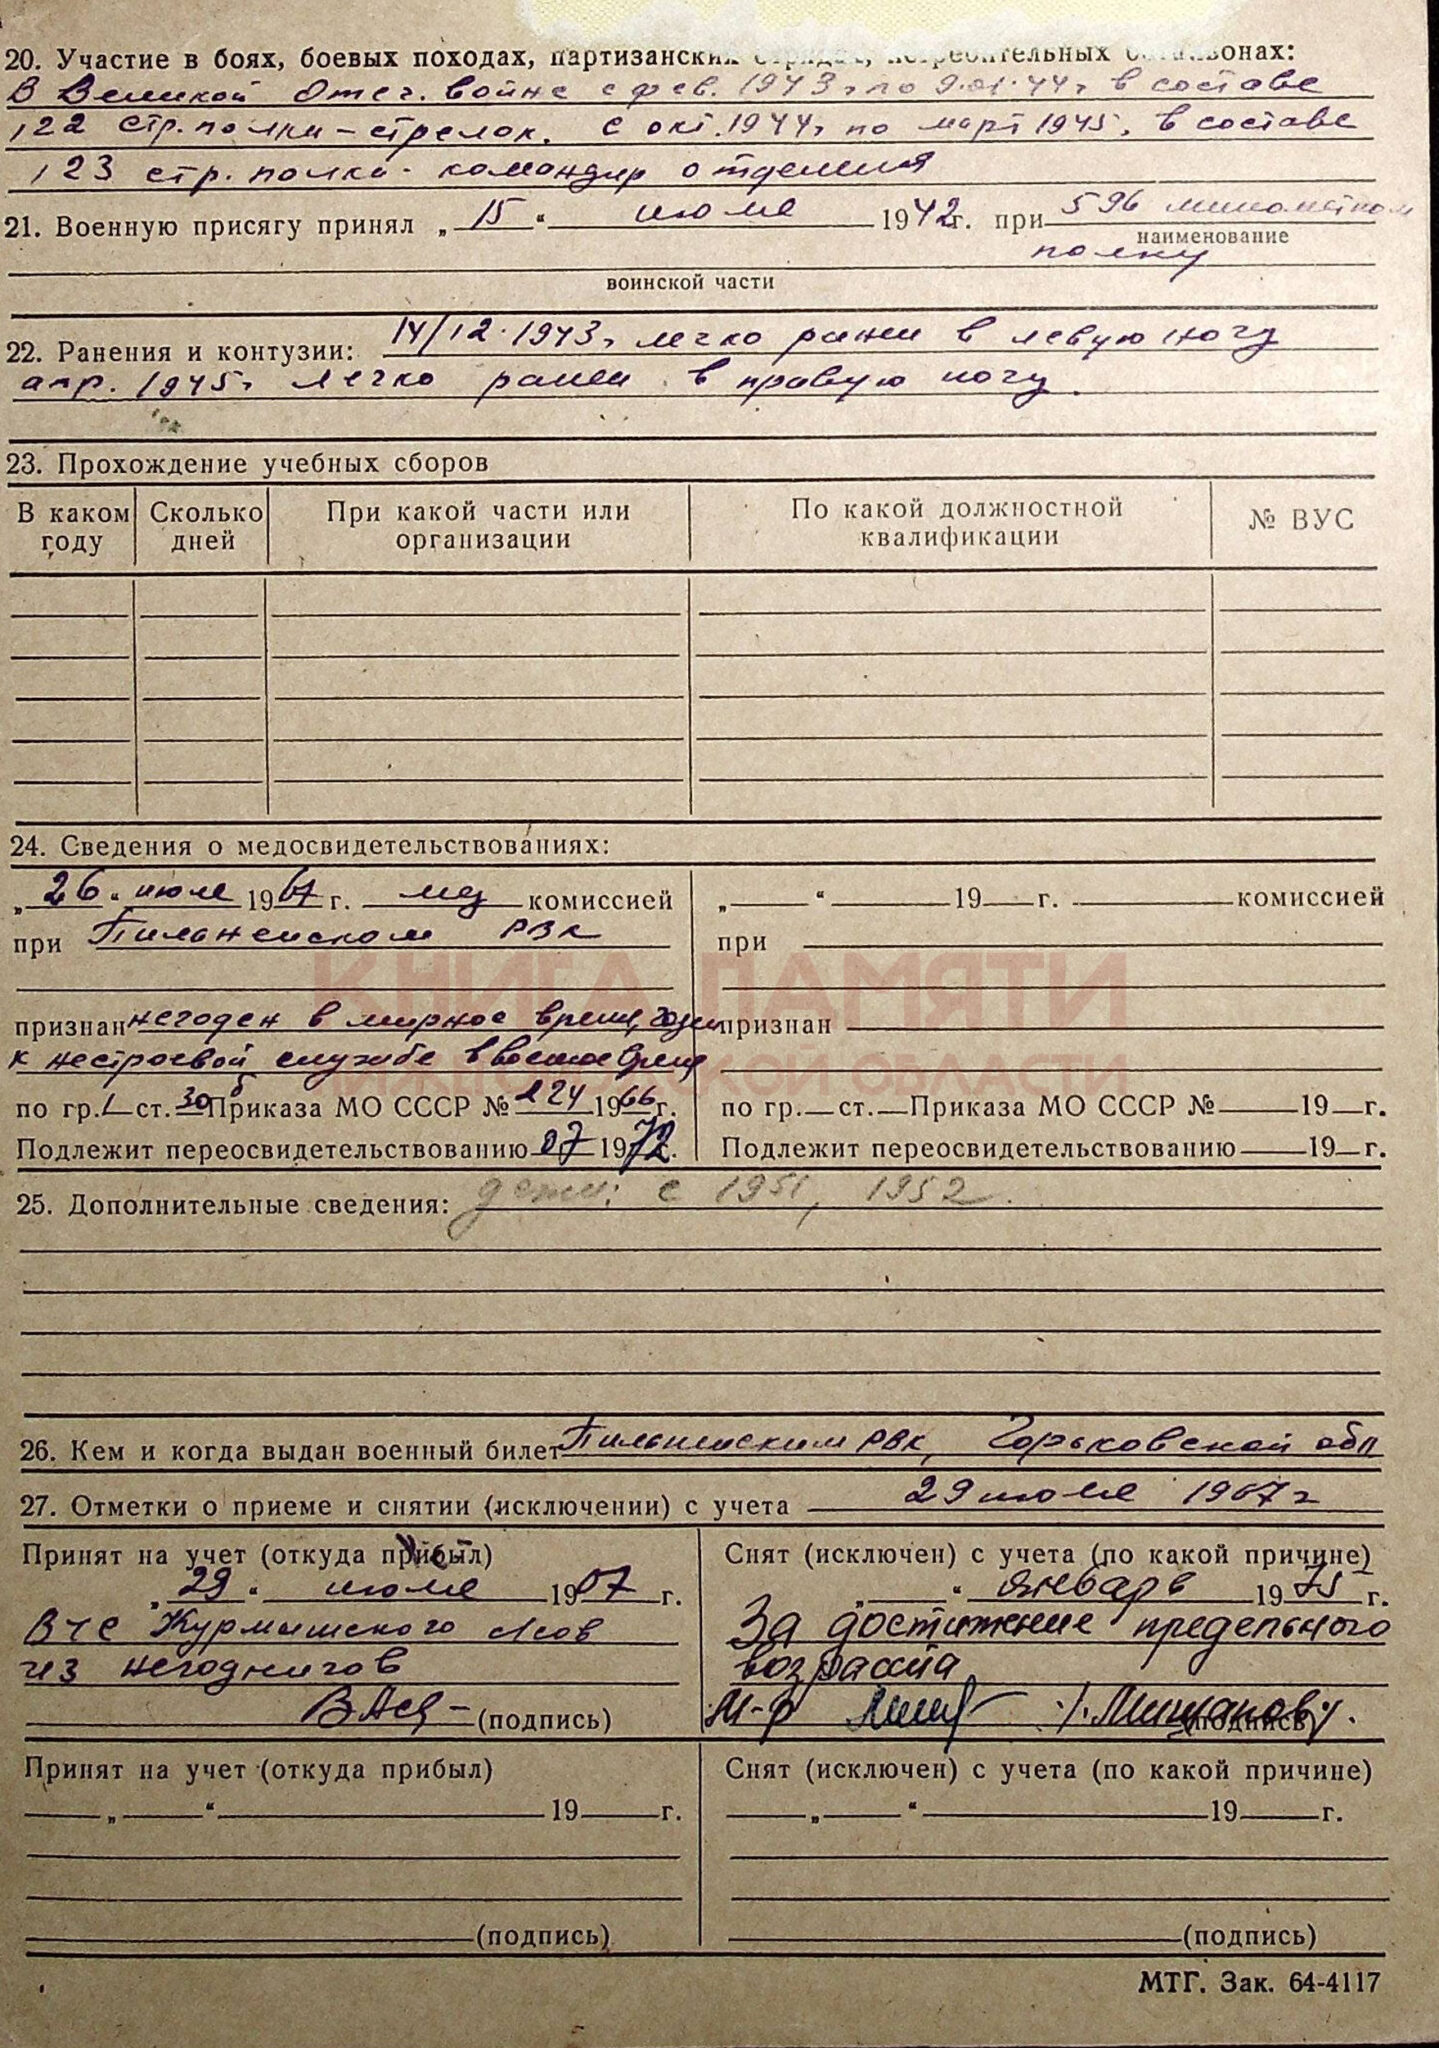 20. Участие в боях, боевых походах, партизанских отрядах, истребительных батальонах:
В Великой Отеч. войне с фев. 1943 г по 9.01.44 г в составе
122 стр. полка - стрелок. с окт. 1944 г по март 1945 г в составе
123 стр. полка - командир отделения
21. Военную присягу принял „ 15 “ июля 1942 г. при 596 минометном
наименование
полку
воинской части
22. Ранения и контузии: 14/12.1943 г легко ранен в левую ногу
апр. 1945 г легко ранен в правую ногу.
23. Прохождение учебных сборов
В каком году Сколько дней При какой части или организации По какой должностной квалификации № ВУС
24. Сведения о медосвидетельствованиях:
„ 26 “ июля 1967 г. мед комиссией
при Пильненском РВК
признан негоден в мирное время, годен
к нестроевой службе в военное время
по гр. I ст. 30б Приказа МО СССР № 224 1966 г.
Подлежит переосвидетельствованию 07 1972 г.
„ “ 19 г. комиссией
при
признан
по гр. ст. Приказа МО СССР № 19 г.
Подлежит переосвидетельствованию 19 г.
КНИГА ПАМЯТИ
НИЖЕГОРОДСКОЙ ОБЛАСТИ
25. Дополнительные сведения: дети: с 1951, 1952.
26. Кем и когда выдан военный билет Пильненским РВК, Горьковской обл
27. Отметки о приеме и снятии (исключении) с учета 29 июля 1967 г
Принят на учет (откуда прибыл)
„ 29 “ июля 1967 г.
ВУС Курмышского
из негодников
(подпись)
Снят (исключен) с учета (по какой причине)
„ “ январь 1975 г.
За достижение предельного
возраста
М-р /. Мишанов/.
(подпись)
Принят на учет (откуда прибыл)
„ “ 19 г.
(подпись)
Снят (исключен) с учета (по какой причине)
„ “ 19 г.
(подпись)
МТГ. Зак. 64-4117